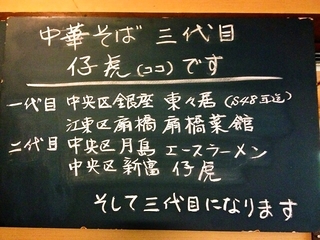 中華そば 三代目
仔虎(ココ)です
一代目 中央区銀座 東々居(S48年迄)
江東区扇橋 扇橋菜館
二代目 中央区月島 エースラーメン
中央区新富 仔虎
そして三代目になります